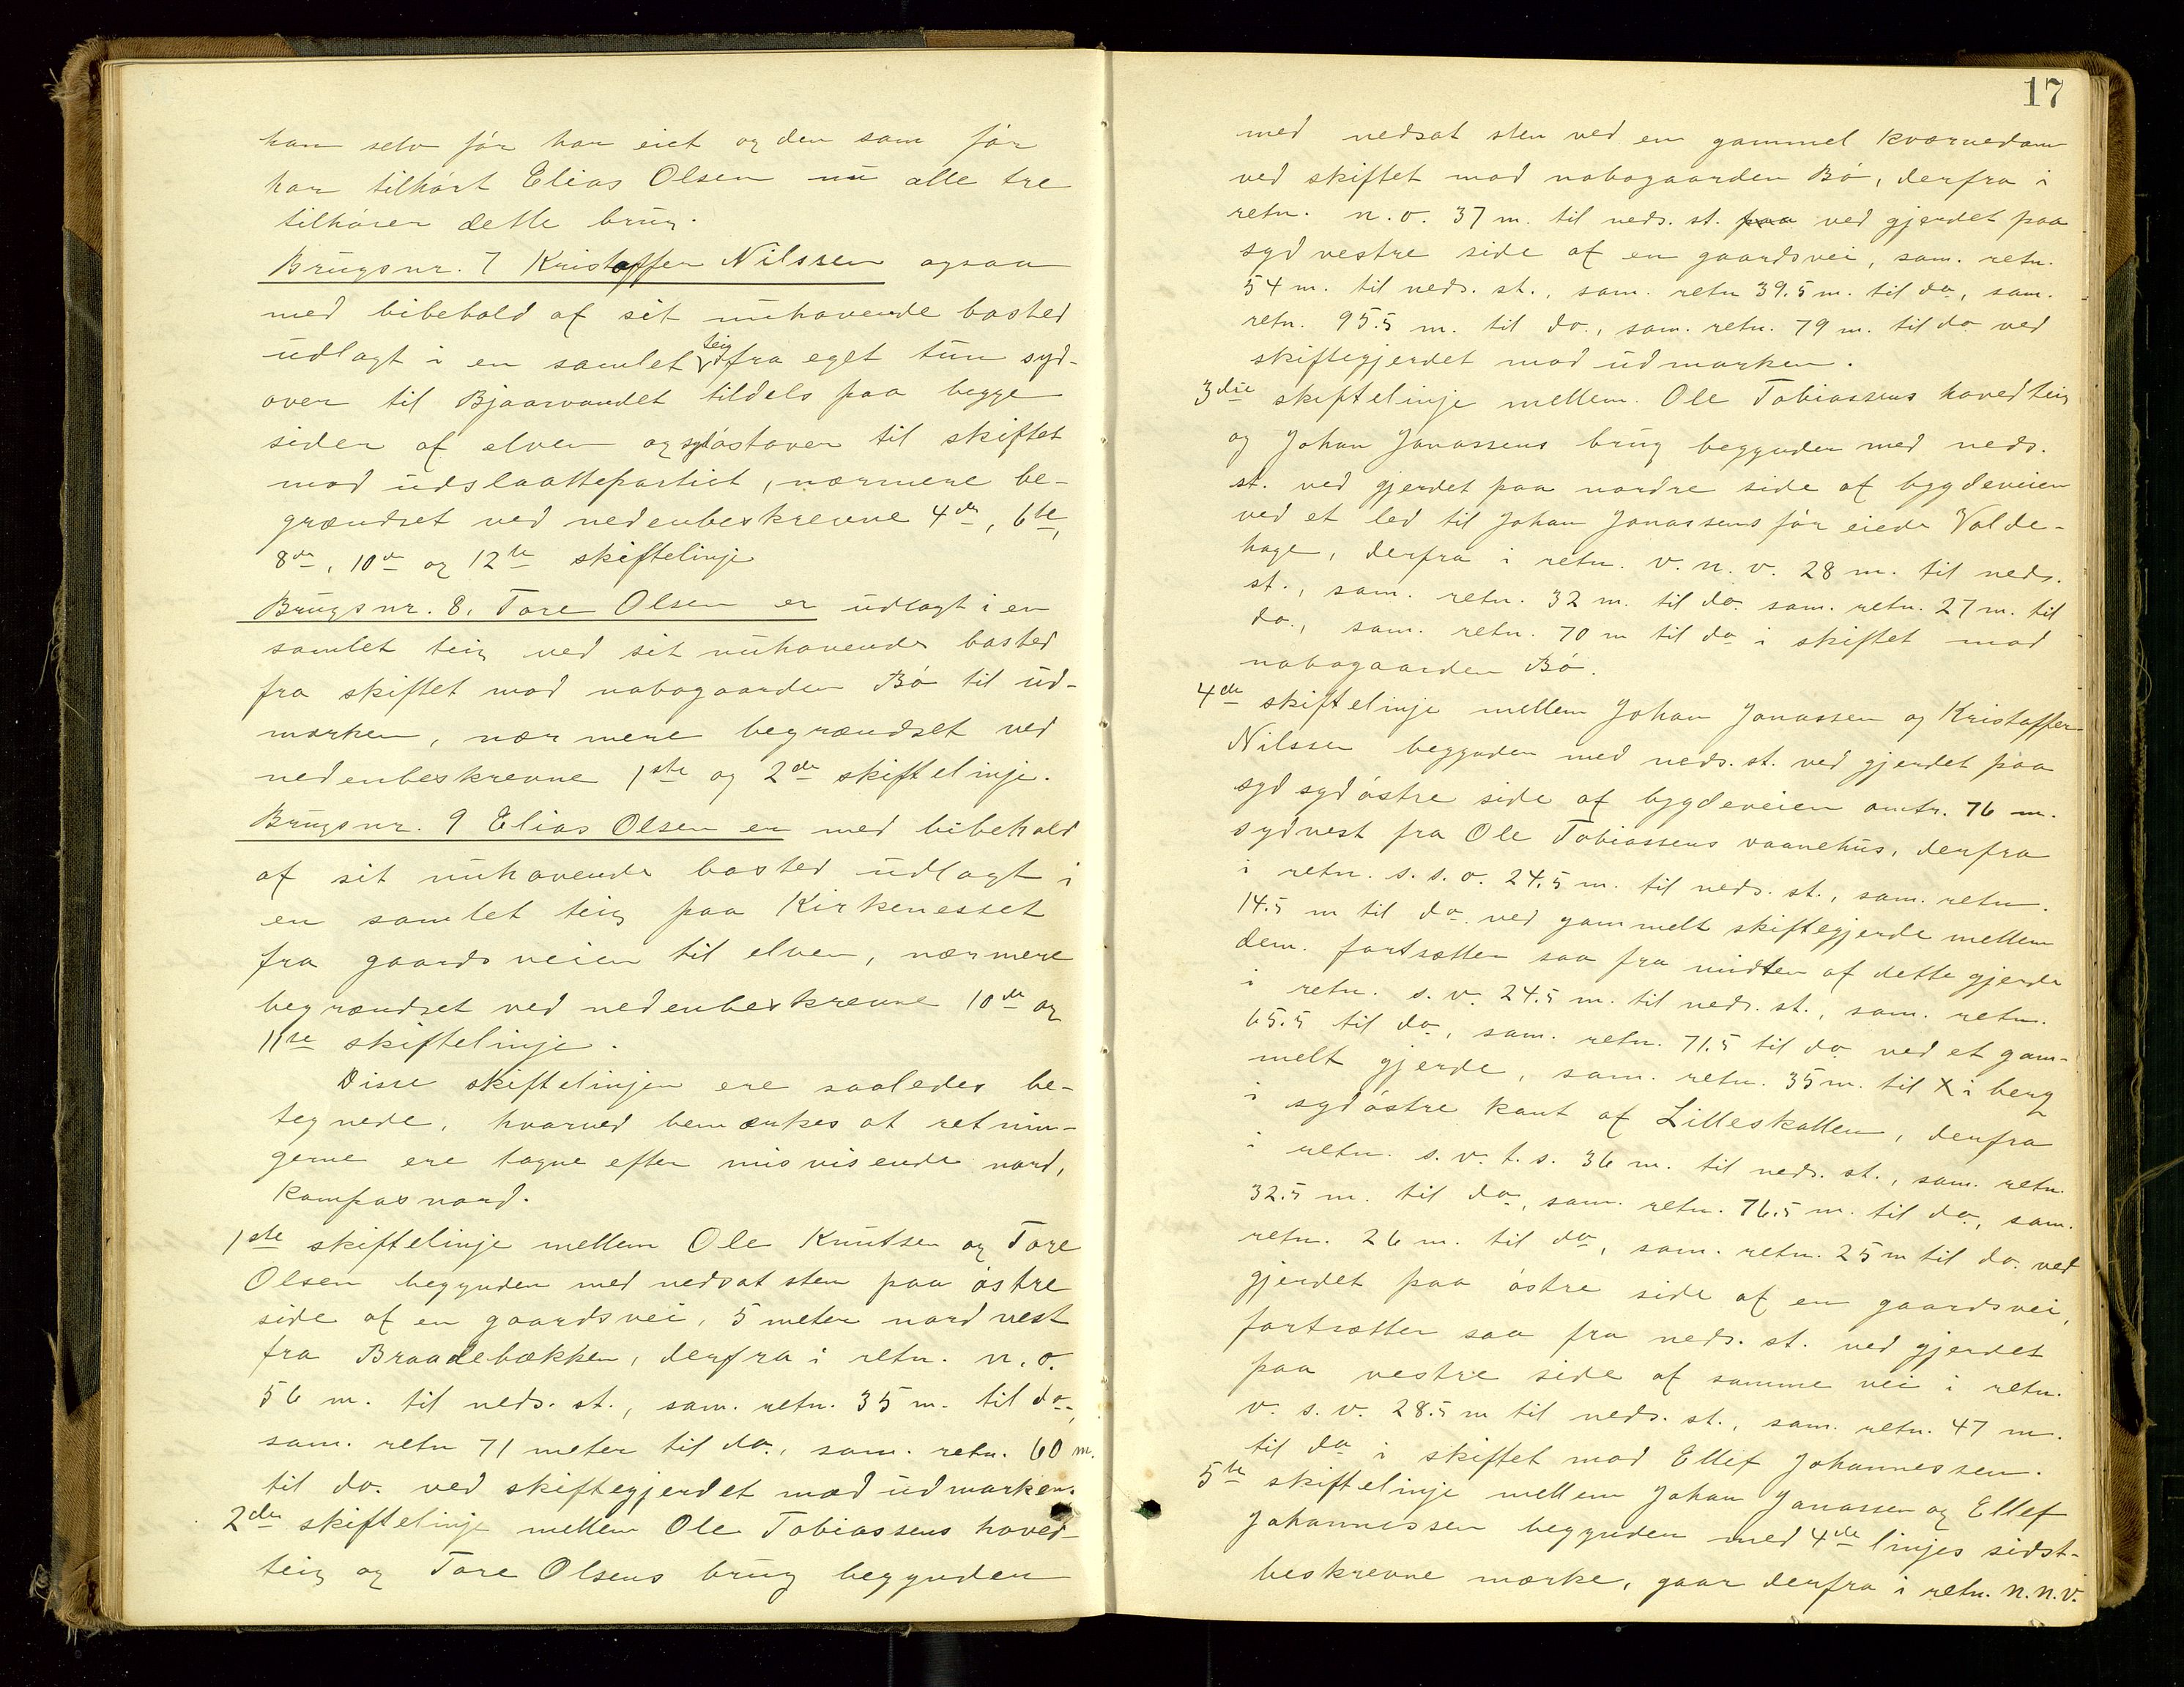 han selv før har eiet og den som før
har tilhørt Elias Olsen nu alle tre
tilhører dette brug.
Brugsnr. 7 Kristoffer Nilssen ogsaa
med bibehold af sit nuhavende bosted
udlagt i en samlet teig fra eget tun syd-
over til Bjaarvandet tildels paa begge
sider af elven og sydøstover til skiftet
mod udslaattepartiet, nærmere be-
grændset ved nedenbeskrevne 4de, 6te,
8de, 10de og 12te skiftelinje
Brugsnr. 8. Tore Olsen er udlagt i en
samlet teig ved sit nuhavende bosted
fra skiftet mod nabogaarden Bø til ud-
marken, nærmere begrændset ved
nedenbeskrevne 1ste og 2de skiftelinje.
Brugsnr. 9 Elias Olsen er med bibehold
af sit nuhavende bosted udlagt i
en samlet teig paa Kirkenesset
fra gaardsveien til elven, nærmere
begrændset ved nedenbeskrevne 10de og
11te skiftelinje.
Disse skiftelinjer ere saaledes be-
tegnede, hvorved bemærkes at retnin-
gerne ere tagne efter misvisende nord,
kompasnord.
1ste skiftelinje mellem Ole Knutsen og Tore
Olsen begynder med nedsat sten paa østre
side af en gaardsvei, 5 meter nordvest
fra Braadebækken, derfra i retn. n. o.
56 m. til neds. st., sam. retn. 35 m. til do.,
sam. retn 71 meter til do., sam. retn. 60 m.
til do. ved skiftegjerdet mod udmarken.
2den skiftelinje mellem Ole Tobiassens hoved-
teig og Tore Olsens brug begynder
17
med nedsat sten ved en gammel kværnedam
ved skiftet mod nabogaarden Bø, derfra i
retn. n. o. 37 m. til neds. st. paa ved gjerdet paa
sydvestre side af en gaardsvei, sam. retn.
54 m. til neds. st., sam. retn 39.5 m. til do., sam.
retn. 95.5 m. til do., sam. retn. 79 m. til do ved
skiftegjerdet mod udmarken.
3die skiftelinje mellem Ole Tobiassens hovedteig
og Johan Jonassens brug begynder med neds.
st. ved gjerdet paa nordre side af bygdeveien
ved et led til Johan Jonassens før eiede Volde-
hage, derfra i retn. v. n. v. 28 m. til neds.
st., sam. retn. 32 m. til do. sam. retn. 27 m. til
do., sam. retn. 70 m til do i skiftet mod
nabogaarden Bø.
4de skiftelinje mellem Johan Jonassen og Kristoffer
Nilssen begynder med neds. st. ved gjerdet paa
sydsydøstre side af bygdeveien omtr. 76 m.
sydvest fra Ole Tobiassens vaanehus, derfra
i retn. s. s. o. 24.5 m. til neds. st., sam. retn.
14.5 m til do. ved gammelt skiftegjerde mellem
dem. fortsætter saa fra midten af dette gjerde
i retn. s. v. 24.5 m. til neds. st., sam. retn.
65.5 til do., sam. retn. 71.5 til do ved et gam-
melt gjerde, sam. retn. 35 m. til X i berg
i sydøstre kant af Lilleskallen, derfra
i retn. s. v. t. s. 36 m. til neds. st., sam. retn.
32.5 m. til do, sam. retn. 76.5 m. til do, sam.
retn. 26 m. til do, sam. retn. 25 m til do. ved
gjerdet paa østre side af en gaardsvei,
fortsætter saa fra neds. st. ved gjerdet
paa vestre side af samme vei i retn.
v. s. v. 28.5 m til neds. st., sam. retn. 47 m.
til do i skiftet mod Ellef Johannessen.
5te skiftelinje mellem Johan Jonassen og Ellef
Johannessen begynder med 4de linjes sidst-
beskrevne mærke, gaar derfra i retn. n. n. v.